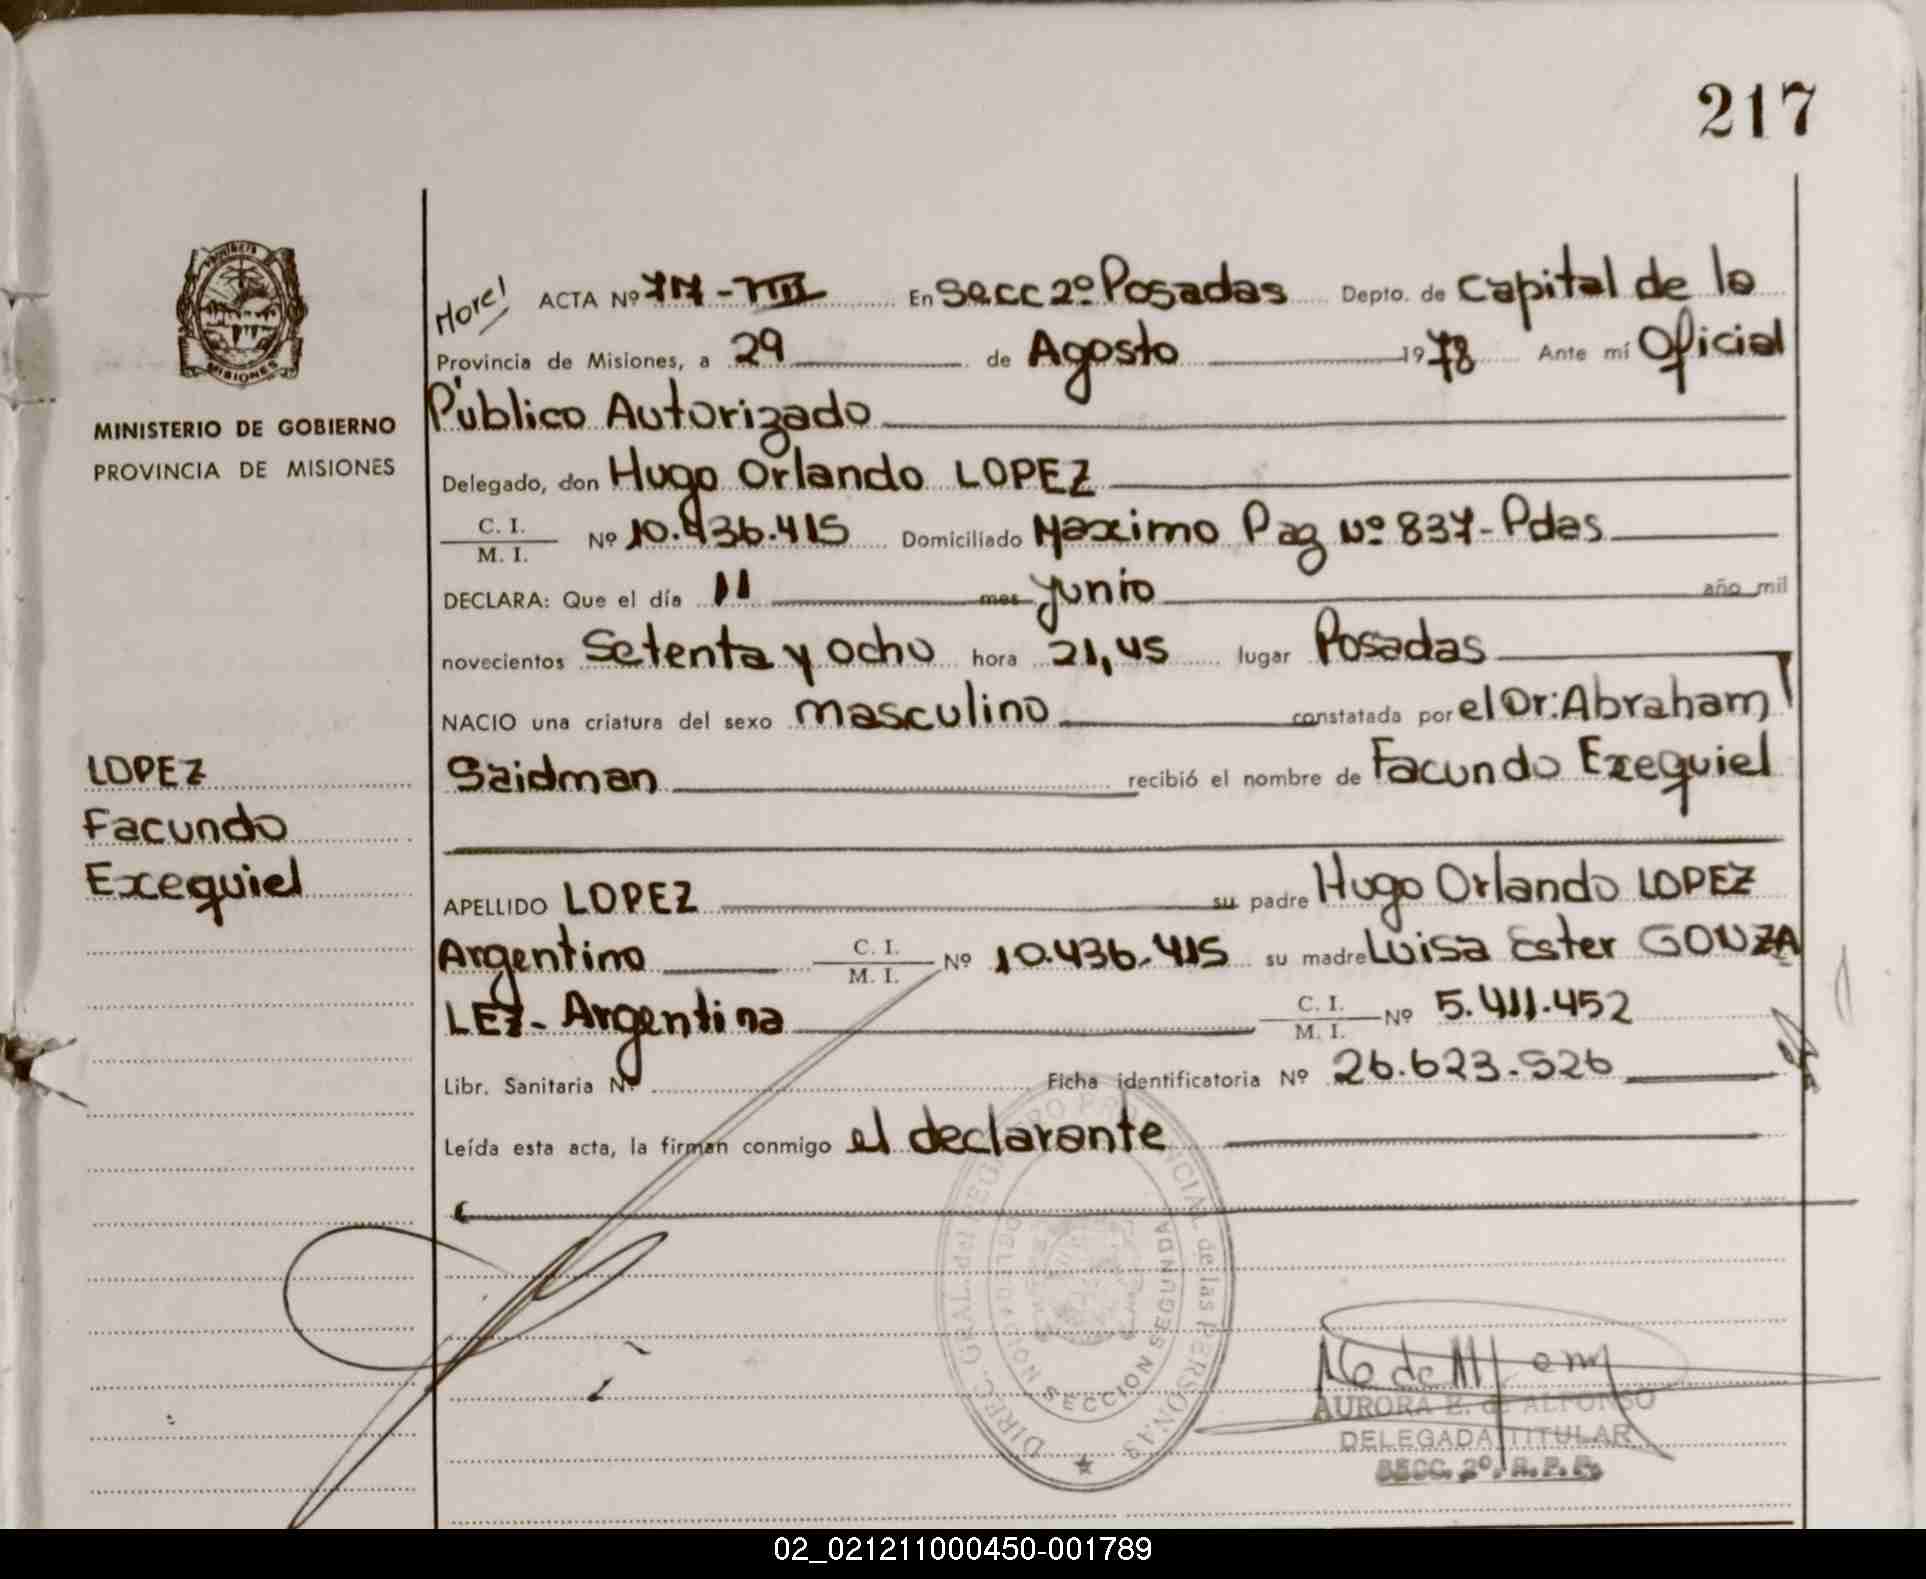 217
PROVINCIA
MISIONES
MINISTERIO DE GOBIERNO
PROVINCIA DE MISIONES
LOPEZ
Facundo
Exequiel
ACTA Nº En Secc 2º Posadas Depto. de Capital de la
Provincia de Misiones, a 29 de Agosto 1978 Ante mí Oficial
Público Autorizado
Delegado, don Hugo Orlando LOPEZ
C. I.
M. I. Nº 10.436.415 Domiciliado Maximo Paz Nº 837- Pdas
DECLARA: Que el día 11 mes junio año mil
novecientos Setenta y ocho hora 21,45 lugar Posadas
NACIO una criatura del sexo masculino constatada por el Dr: Abraham
Saidman recibió el nombre de Facundo Exequiel
APELLIDO LOPEZ su padre Hugo Orlando LOPEZ
Argentino C. I.
M. I. Nº 10.436.415 su madre Luisa Ester GONZA
LEZ- Argentina C. I.
M. I. Nº 5.411.452
Libr. Sanitaria Nº Ficha identificatoria Nº 26.623.526
Leída esta acta, la firman conmigo el declarante
DIREC. GRAL. del REGISTRO PROVINCIAL de las PERSONAS
SECCION SEGUNDA
AURORA E. de ALFONSO
DELEGADA TITULAR
SECC. 2º. R. P. P.
02_021211000450-001789